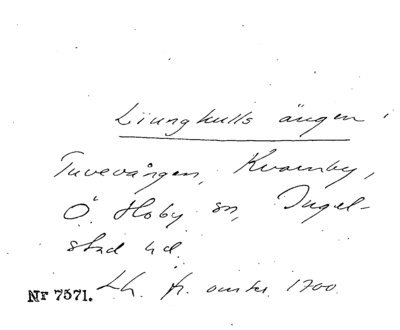 Liunghulls ängen i
Tuvevången, Kvarnby,
Ö. Hoby sn, Ingel-
stad hd.
Lh. fr. omkr. 1700
Nr 7571.